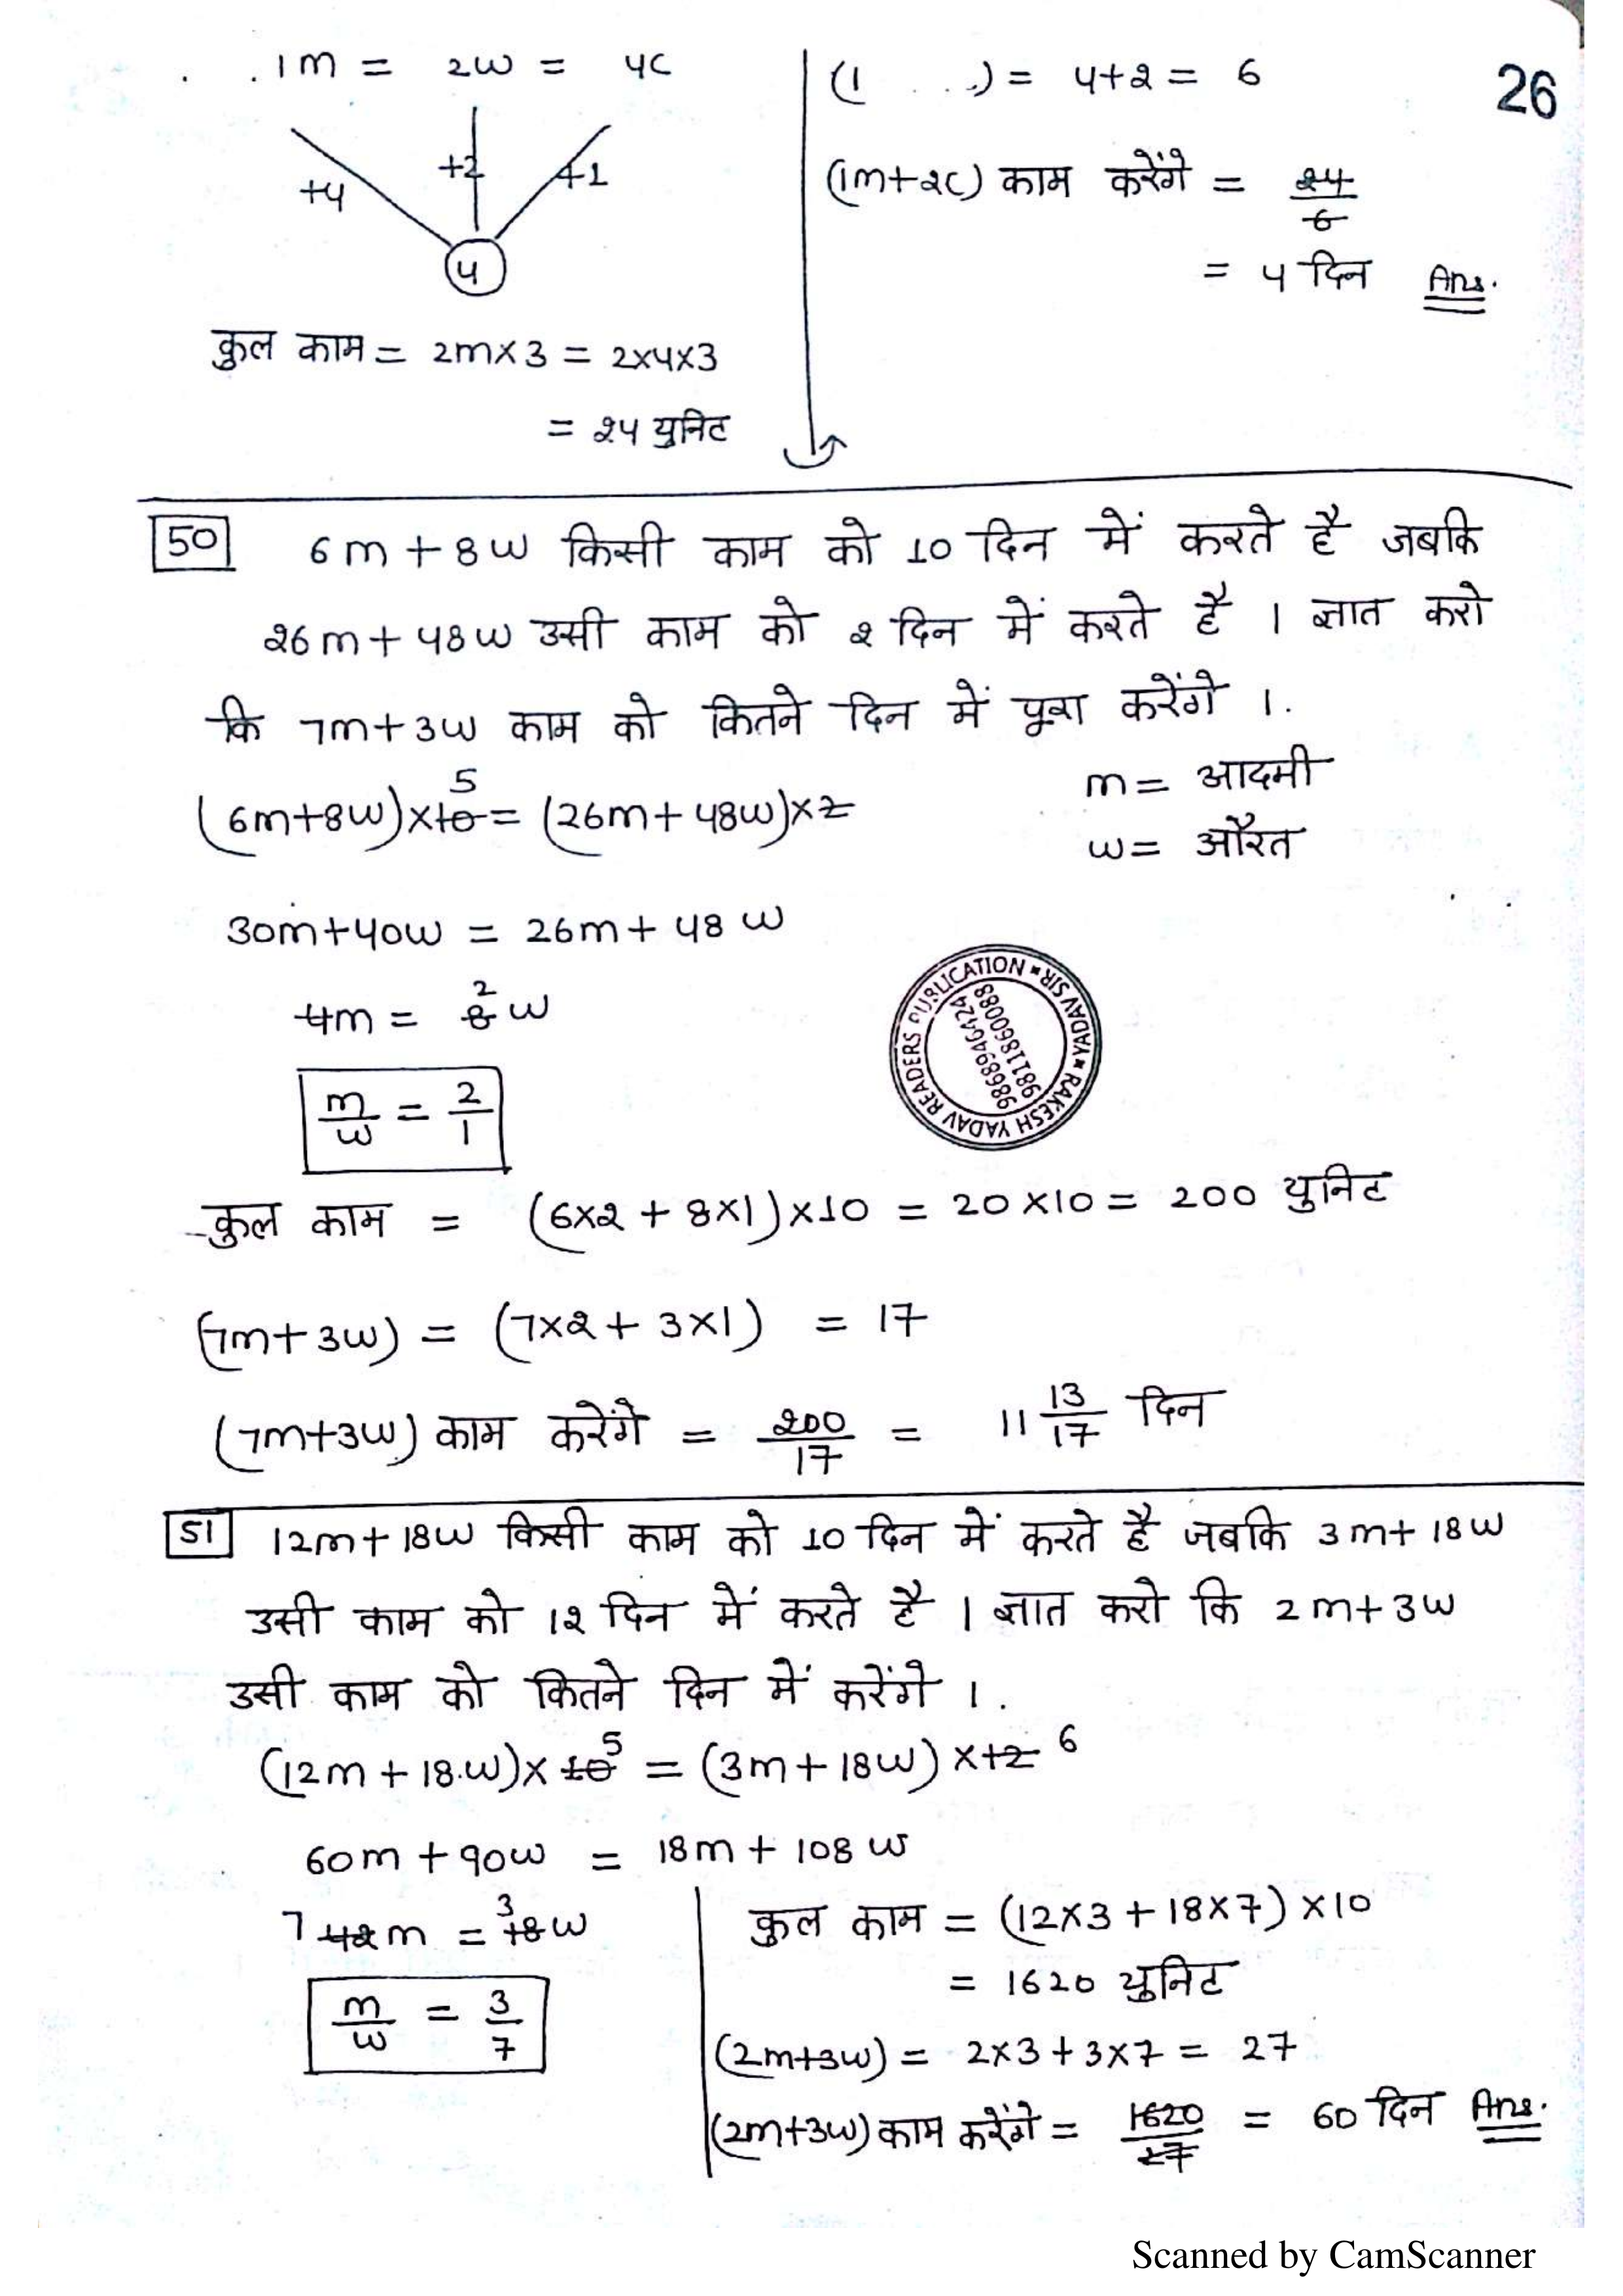 1m = 2w = 4c
+4 +2 +1
4
कुल काम = 2m×3 = 2×4×3
= 24 युनिट
(1 ...) = 4+2 = 6
(1m+2c) काम करेंगे = 24/6
= 4 दिन Ans.
26
50 6m + 8w किसी काम को 10 दिन में करते है जबकि
26m + 48w उसी काम को 2 दिन में करते है । ज्ञात करो
कि 7m+3w काम को कितने दिन में पूरा करेंगे ।.
m = आदमी
w = औरत
(6m+8w)×10 5 = (26m+48w)×2
30m+40w = 26m+48w
4m = 8 2 w
m/w = 2/1
READERS PUBLICATION * YADAV SIR * RAKESH YADAV
9868946424
9811860088
कुल काम = (6×2 + 8×1)×10 = 20×10 = 200 युनिट
(7m+3w) = (7×2 + 3×1) = 17
(7m+3w) काम करेंगे = 200/17 = 11 13/17 दिन
51 12m+18w किसी काम को 10 दिन में करते है जबकि 3m+18w
उसी काम को 12 दिन में करते है । ज्ञात करो कि 2m+3w
उसी काम को कितने दिन में करेंगे ।.
(12m+18.w)×10 5 = (3m+18w)×12 6
60m+90w = 18m+108w
7 42m = 3 18w
m/w = 3/7
कुल काम = (12×3+18×7)×10
= 1620 युनिट
(2m+3w) = 2×3+3×7 = 27
(2m+3w) काम करेंगे = 1620/27 = 60 दिन Ans.
Scanned by CamScanner